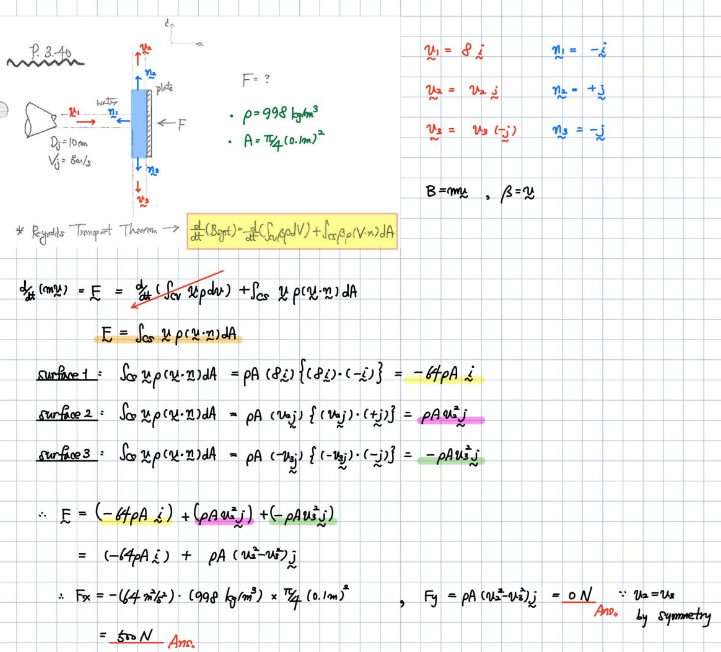 P. 3.40
plate
water
D_j = 10cm
V_j = 8m/s
v₁
n₁
v₂
n₂
v₃
n₃
← F
F = ?
• ρ = 998 kg/m³
• A = π/4 (0.1m)²
v₁ = 8 i n₁ = -i
v₂ = v₂ j n₂ = +j
v₃ = v₃ (-j) n₃ = -j
B = mv , β = v
* Reynolds Transport Theorem → d/dt(Bsyst) = d/dt(∫cv βρdV) + ∫cs βρ(V·n)dA
d/dt (mv) = F = d/dt (∫cv vρdv) + ∫cs v ρ(v·n) dA
F = ∫cs v ρ(v·n)dA
surface 1 : ∫cs v ρ(v·n)dA = ρA (8i) {(8i)·(-i)} = -64ρA i
surface 2 : ∫cs v ρ(v·n)dA = ρA (v₂j) {(v₂j)·(+j)} = ρAv₂²j
surface 3 : ∫cs v ρ(v·n)dA = ρA (-v₃j) {(-v₃j)·(-j)} = -ρAv₃²j
∴ F = (-64ρA i) + (ρAv₂²j) + (-ρAv₃²j)
= (-64ρA i) + ρA (v₂²-v₃²)j
∴ Fx = -(64 m²/s²)·(998 kg/m³) × π/4 (0.1m)² , Fy = ρA (v₂²-v₃²)j = 0 N ∵ v₂=v₃
Ans. by symmetry
= 500 N Ans.